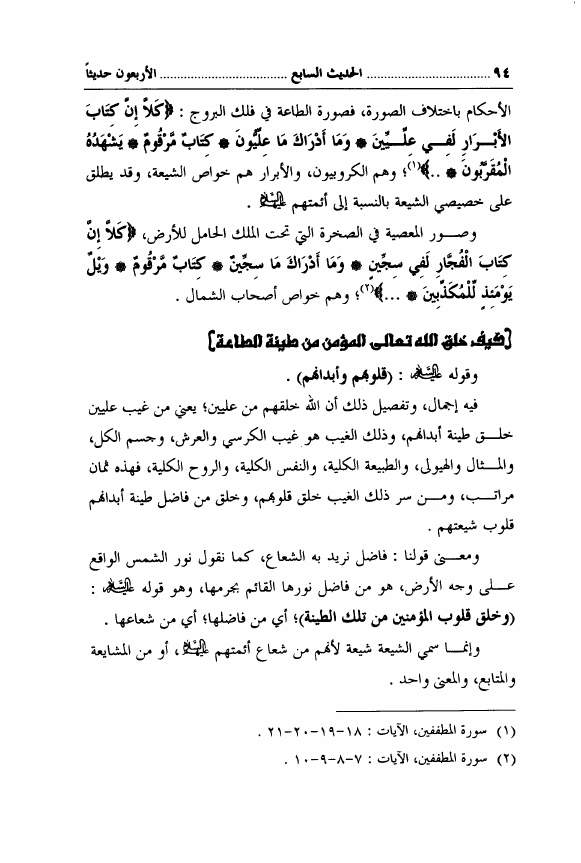 ٩٤ .................................... الحديث السابع .................................... الأربعون حديثاً
الأحكام باختلاف الصورة، فصورة الطاعة في فلك البروج : ﴿كَلاَّ إِنَّ كِتَابَ
الأَبْرَارِ لَفِي عِلِّيِّينَ * وَمَا أَدْرَاكَ مَا عِلِّيُّونَ * كِتَابٌ مَّرْقُومٌ * يَشْهَدُهُ
الْمُقَرَّبُونَ * ..﴾(١)؛ وهم الكروبيون، والأبرار هم خواص الشيعة، وقد يطلق
على خصيصي الشيعة بالنسبة إلى أئمتهم .
وصور المعصية في الصخرة التي تحت الملك الحامل للأرض، ﴿كَلاَّ إِنَّ
كِتَابَ الْفُجَّارِ لَفِي سِجِّينٍ * وَمَا أَدْرَاكَ مَا سِجِّينٌ * كِتَابٌ مَّرْقُومٌ * وَيْلٌ
يَوْمَئِذٍ لِّلْمُكَذِّبِينَ * ...﴾(٢)؛ وهم خواص أصحاب الشمال .
[كيف خلق الله تعالى المؤمن من طينة الطاعة]
وقوله : (قلوبهم وأبدانهم) .
فيه إجمال، وتفصيل ذلك أن الله خلقهم من عليين؛ يعني من غيب عليين
خلق طينة أبدانهم، وذلك الغيب هو غيب الكرسي والعرش، وجسم الكل،
والمثال والهيولى، والطبيعة الكلية، والنفس الكلية، والروح الكلية، فهذه ثمان
مراتب، ومن سر ذلك الغيب خلق قلوبهم، وخلق من فاضل طينة أبدانهم
قلوب شيعتهم .
ومعنى قولنا : فاضل نريد به الشعاع، كما نقول نور الشمس الواقع
على وجه الأرض، هو من فاضل نورها القائم بجرمها، وهو قوله :
(وخلق قلوب المؤمنين من تلك الطينة)؛ أي من فاضلها؛ أي من شعاعها .
وإنما سمي الشيعة شيعة لأنهم من شعاع أئمتهم ، أو من المشايعة
والمتابع، والمعنى واحد .
(١) سورة المطففين، الآيات : ١٨-١٩-٢٠-٢١ .
(٢) سورة المطففين، الآيات : ٧-٨-٩-١٠ .